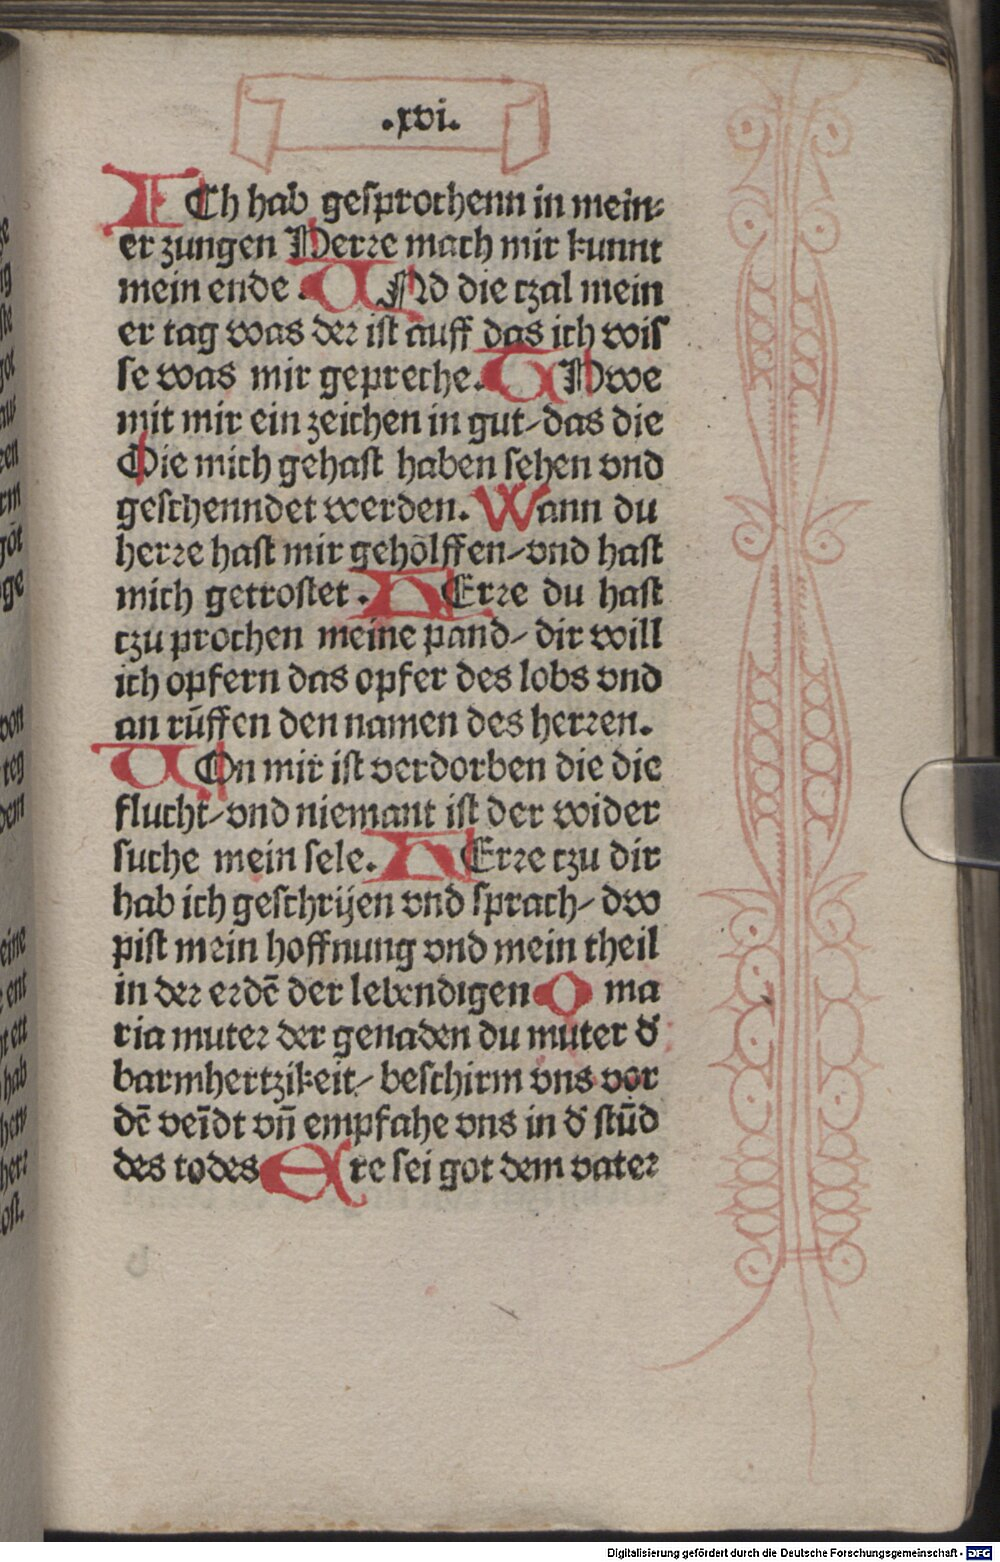 .xvi.
ICh hab gesprochenn in mein⸗
er zungen Herre mach mir kunnt
mein ende. UNd die tzal mein
er tag was der ist auff das ich wis
se was mir gepreche. THwe
mit mir ein zeichen in gut/das die
Die mich gehast haben sehen vnd
geschenndet werden. Wann du
herre hast mir geholffen/vnd hast
mich getrostet. HErre du hast
tzu prochen meine pand/ dir will
ich opfern das opfer des lobs vnd
an rüffen den namen des herren.
VOn mir ist verdorben die die
flucht/vnd niemant ist der wider
suche mein sele. HErre tzu dir
hab ich geschrijen vnd sprach/ dw
pist mein hoffnung vnd mein theil
in der erdē der lebendigen O ma
ria muter der genaden du muter d̕
barmhertzikeit/ beschirm vns vor
dē veīdt vn̄ empfahe vns in d̕ stūd
des todes Ere sei got dem vater
Digitalisierung gefördert durch die Deutsche Forschungsgemeinschaft - DFG